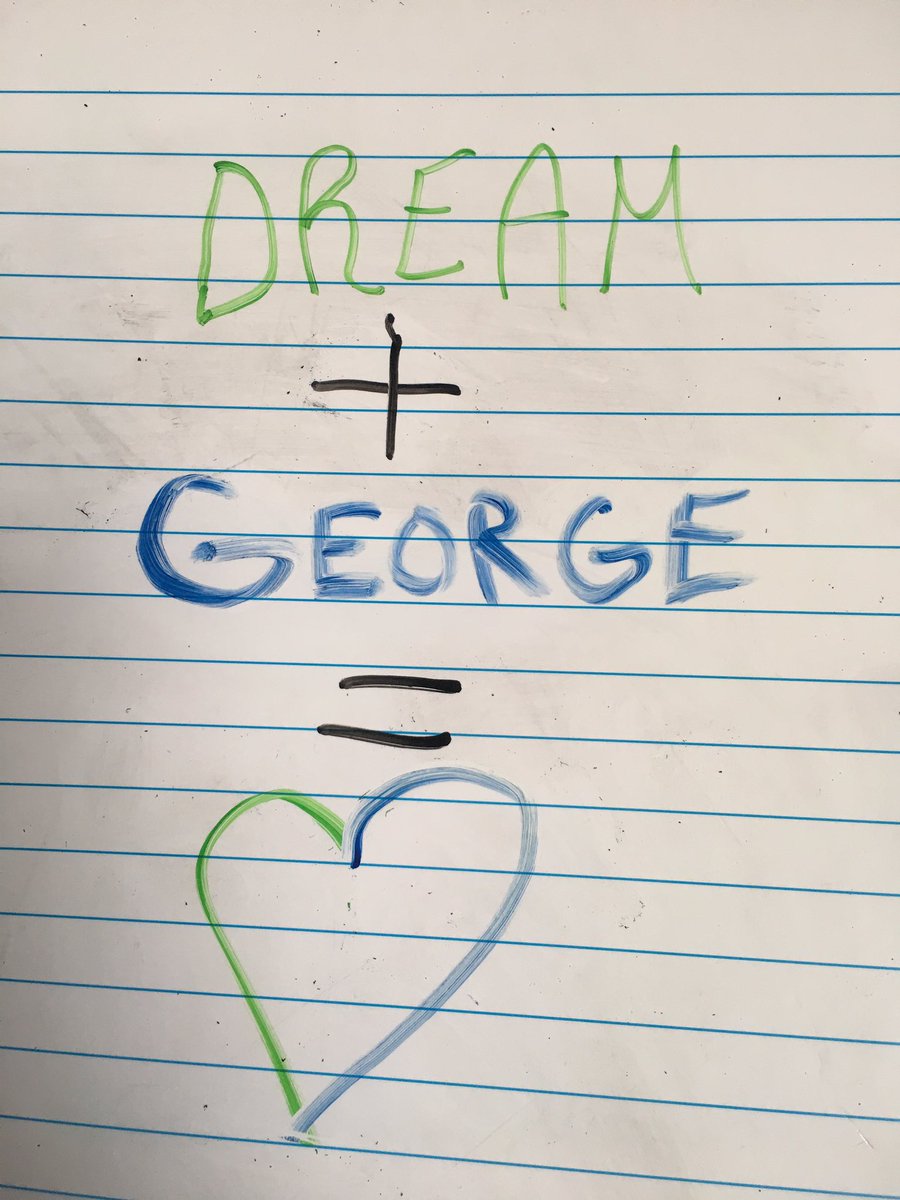 DREAM
+
GEORGE
=